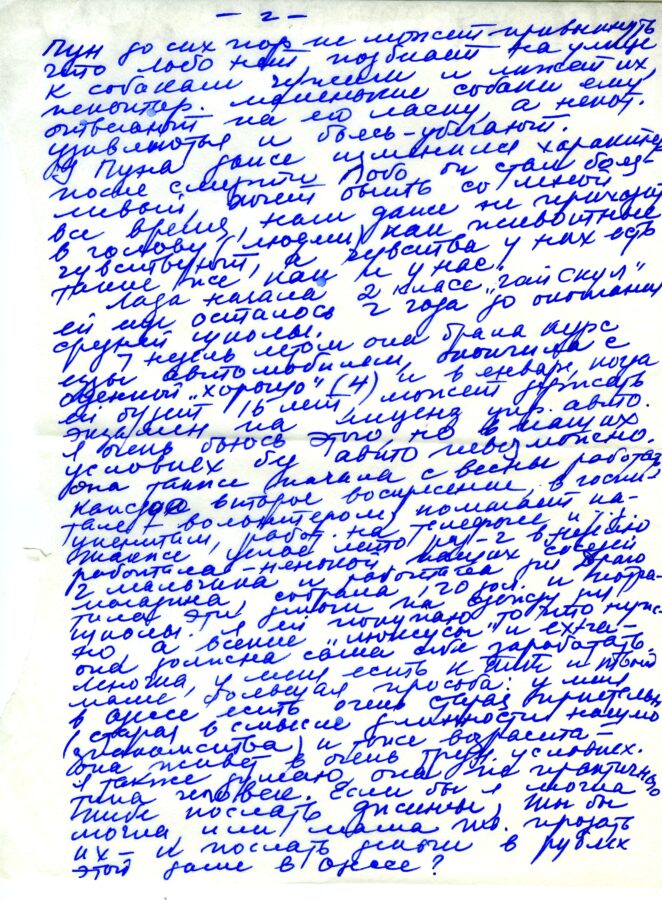 – 2 –
Пун до сих пор не может привыкнуть
что Лобо нет подбегает на улице
к собакам чужим и лижет их,
некоптор. маленькие собаки ему
отвечают на его ласку, а некот.
удивляются и боясь – убегают.
У Пуна даже изменился характер
после смерти Лобо, он стал бояз-
ливый, хочет быть со мной
все время, нам даже не приходит
в голову (людям) как животные
чувствуют, а чувства у них есть
такие же как и у нас.
Лада начала 2 класс „гай скул"
ей еще осталось 2 года до окончания
средней школы.
7 недель летом она брала курс
езды автомобилем, окончила с
оценкой „хорошо" (4) и в январе, когда
ей будет 16 лет, может держать
экзамен на лиценз упр. авто.
Я очень боюсь этого но в наших
условиях без авто невозможно.
Она также начала с весны работать
каждое второе воскресение, в госпи-
тале – волонтером, помогает па-
циентам, работ. на телефоне и т.д.
также целое лето раз-2 в неделю
работала – нянькой наших соседей
2 мальчика и работала для
магазина, собрала 120 дол. и потра-
тила эти деньги на одежду для
школы. Я ей покупаю то что нуж-
но а всякие „люксусы" и
она должна сама себе заработать.
Леночка, у меня есть к тебе и твоей
маме, большая просьба: у меня
в Одессе есть очень старая приятельн.
(старая в смысле длинности нашего
знакомства) и тоже возраста –
она живет в очень труд. условиях.
Я также думаю, она не практичный
типа человек. Если бы я могла
тебе послать джинсы, ты бы
могла, или мама тв. продать
их – и послать деньги в рублях
этой даме в Одессе?